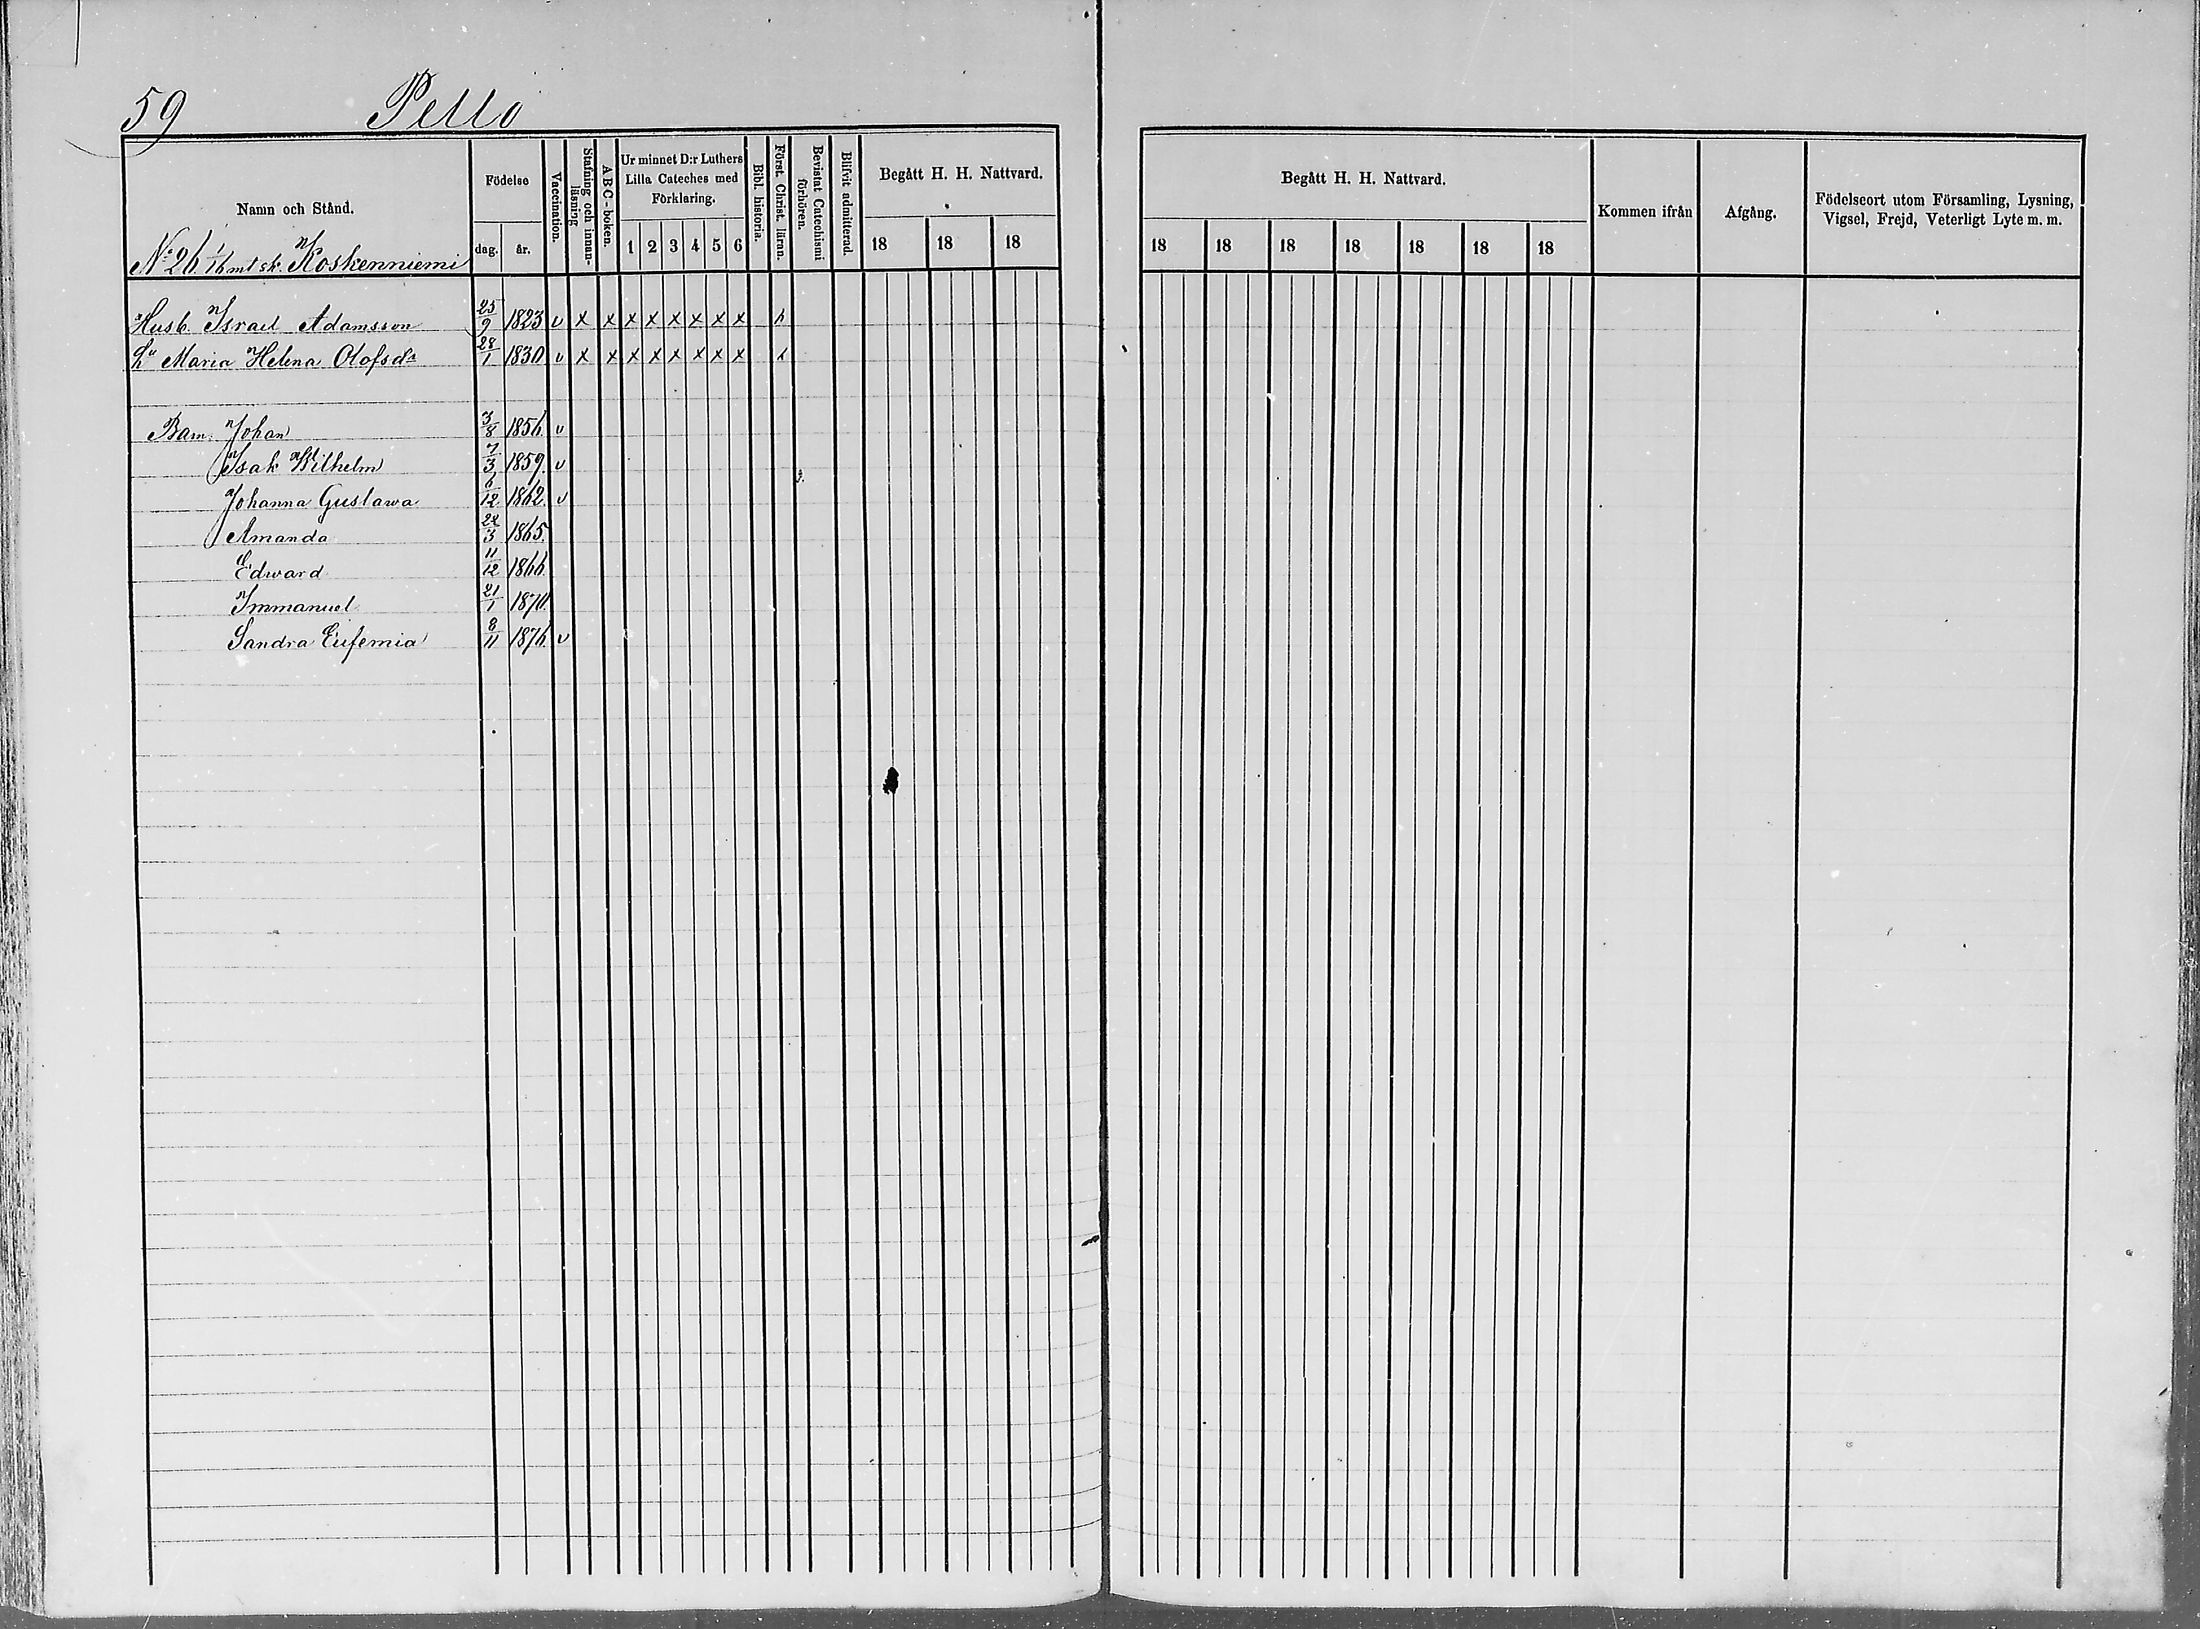 59 Pello
Namn och Stånd.
Födelse
dag. år.
Vaccination.
Stafning och innan-läsning
ABC-boken.
Ur minnet D:r Luthers Lilla Cateches med Förklaring.
1 2 3 4 5 6
Bibl. historia.
Först. Christ. läran.
Bevistat Catechismi förhören.
Blifvit admitterad.
Begått H. H. Nattvard.
18 18 18
Begått H. H. Nattvard.
18 18 18 18 18 18 18
Kommen ifrån
Afgång.
Födelseort utom Församling, Lysning,
Vigsel, Frejd, Veterligt Lyte m. m.
No 26. 1/6 mt sk. Koskenniemi
Husb. Israel Adamsson 25/9 1823 v x x x x x x x x
Hu Maria Helena Olofsdr 28/1 1830 v x x x x x x x x
Barn: Johan 3/8 1856 v
Isak Wilhelm 7/3 1859. v
Johanna Gustawa 6/12 1862 v
Amanda 3 1865.
Edward 11/12 1866
Immanuel 21/1 1870.
Sandra Eufemia 8/11 1876 v